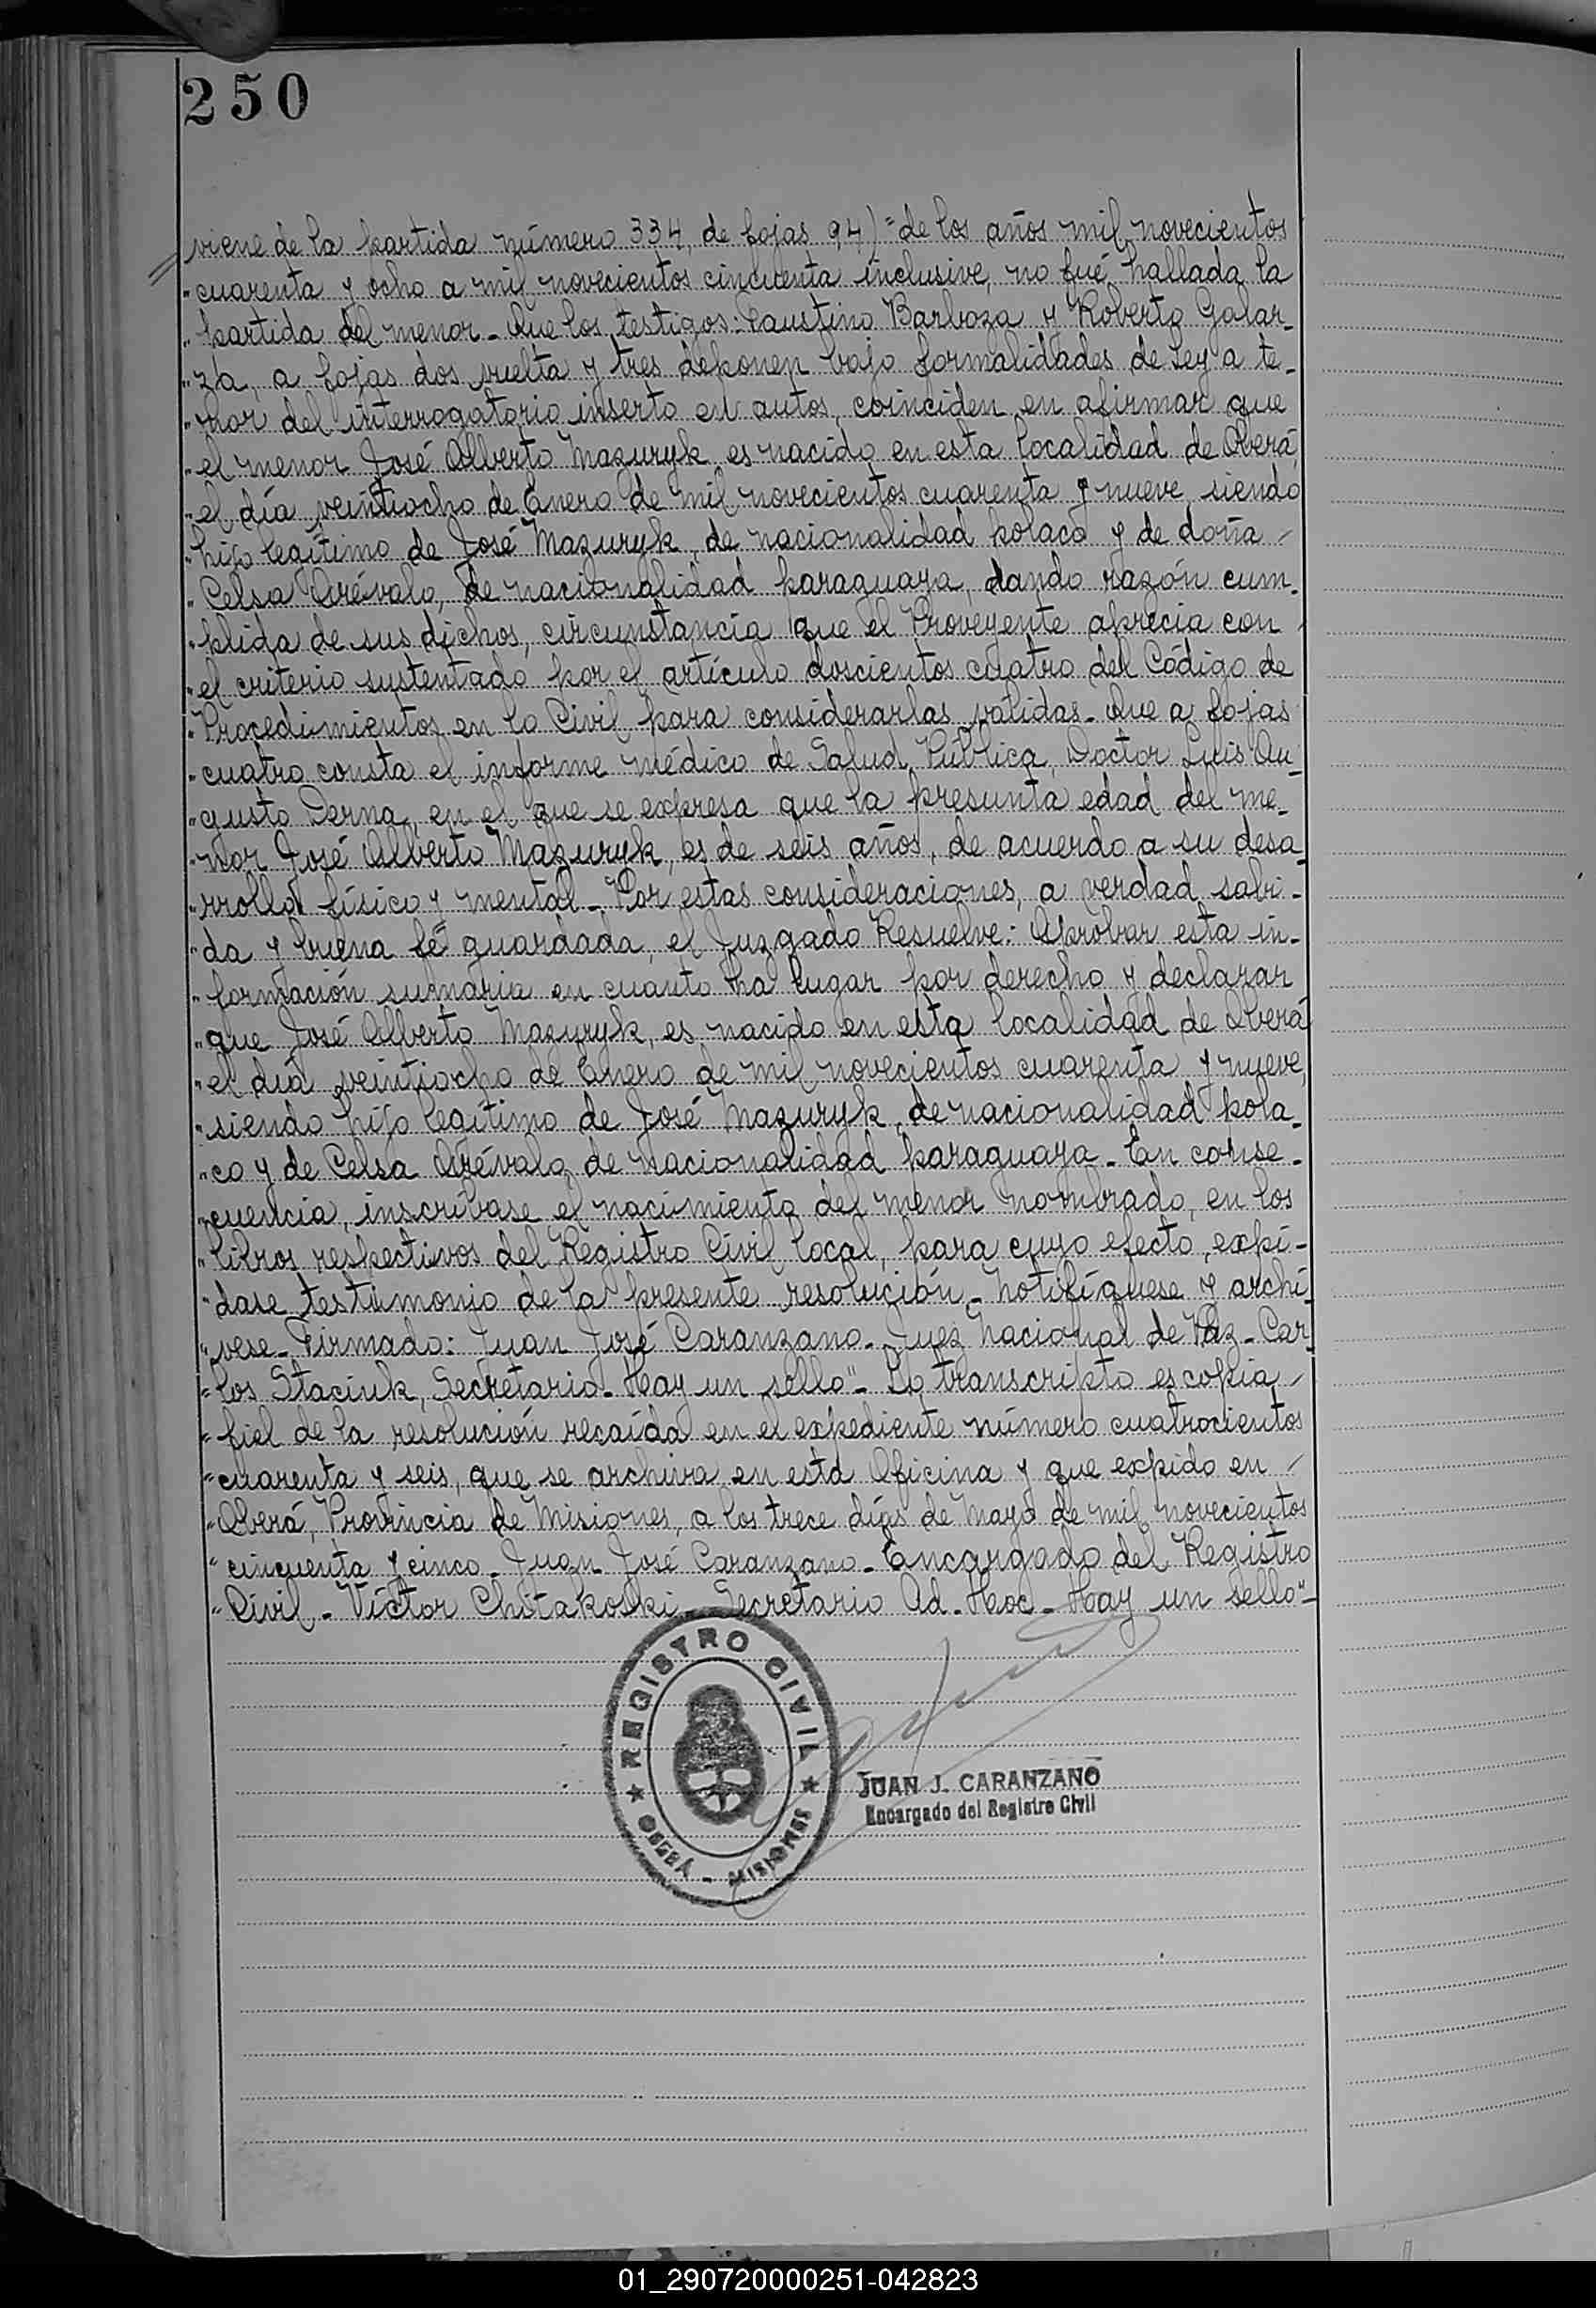 250
viene de la partida número 334, de fojas 94)="de los años mil novecientos
"cuarenta y ocho a mil novecientos cincuenta inclusive, no fué hallada la
"partida del menor_ Que los testigos: Faustino Barboza y Roberto Galar-
"za, a fojas dos vuelta y tres deponen bajo formalidades de Ley a te-
"nor del interrogatorio inserto en autos, coinciden en afirmar que
"el menor José Alberto Mazuryk es nacido en esta localidad de Oberá,
"el día veintiocho de Enero de mil novecientos cuarenta y nueve, siendo
"hijo legítimo de José Mazuryk, de nacionalidad polaca y de doña /
"Celsa Arévalo, de nacionalidad paraguaya, dando razón cum-
"plida de sus dichos, circunstancia que el Proveyente aprecia con /
"el criterio sustentado por el artículo doscientos cuatro del Código de
"Procedimientos en lo Civil para considerarlas válidas_ Que a fojas
"cuatro consta el informe médico de Salud Pública, Doctor Luis Au-
"gusto Derna, en el que se expresa que la presunta edad del me-
"nor José Alberto Mazuryk, es de seis años, de acuerdo a su desa-
"rrollo físico y mental_ Por estas consideraciones, a verdad sabi-
"da y buena fé guardada, el Juzgado Resuelve: Aprobar esta in-
"formación sumaria en cuanto ha lugar por derecho y declarar
"que José Alberto Mazuryk, es nacido en esta localidad de Oberá
"el día veintiocho de Enero de mil novecientos cuarenta y nueve,
"siendo hijo legítimo de José Mazuryk, de nacionalidad pola-
"co y de Celsa Arévalo, de nacionalidad paraguaya_ En conse-
"cuencia, inscríbase el nacimiento del menor nombrado, en los
"libros respectivos del Registro Civil local, para cuyo efecto, expí-
"dase testimonio de la presente resolución_ Notifíquese y archí-
"vese_ Firmado: Juan José Caranzano_ Juez Nacional de Paz_ Car-
"los Staciuk, Secretario_ Hay un sello"_ Lo transcripto es copia /
"fiel de la resolución recaída en el expediente número cuatrocientos
"cuarenta y seis, que se archiva en esta Oficina y que expido en /
"Oberá, Provincia de Misiones, a los trece días de Mayo de mil novecientos
"cincuenta y cinco_ Juan José Caranzano_ Encargado del Registro
"Civil_ Víctor Chitakoski_ Secretario Ad_Hoc_ Hay un sello"_
REGISTRO CIVIL
OBERÁ - MISIONES
JUAN J. CARANZANO
Encargado del Registro Civil
01_290720000251-042823